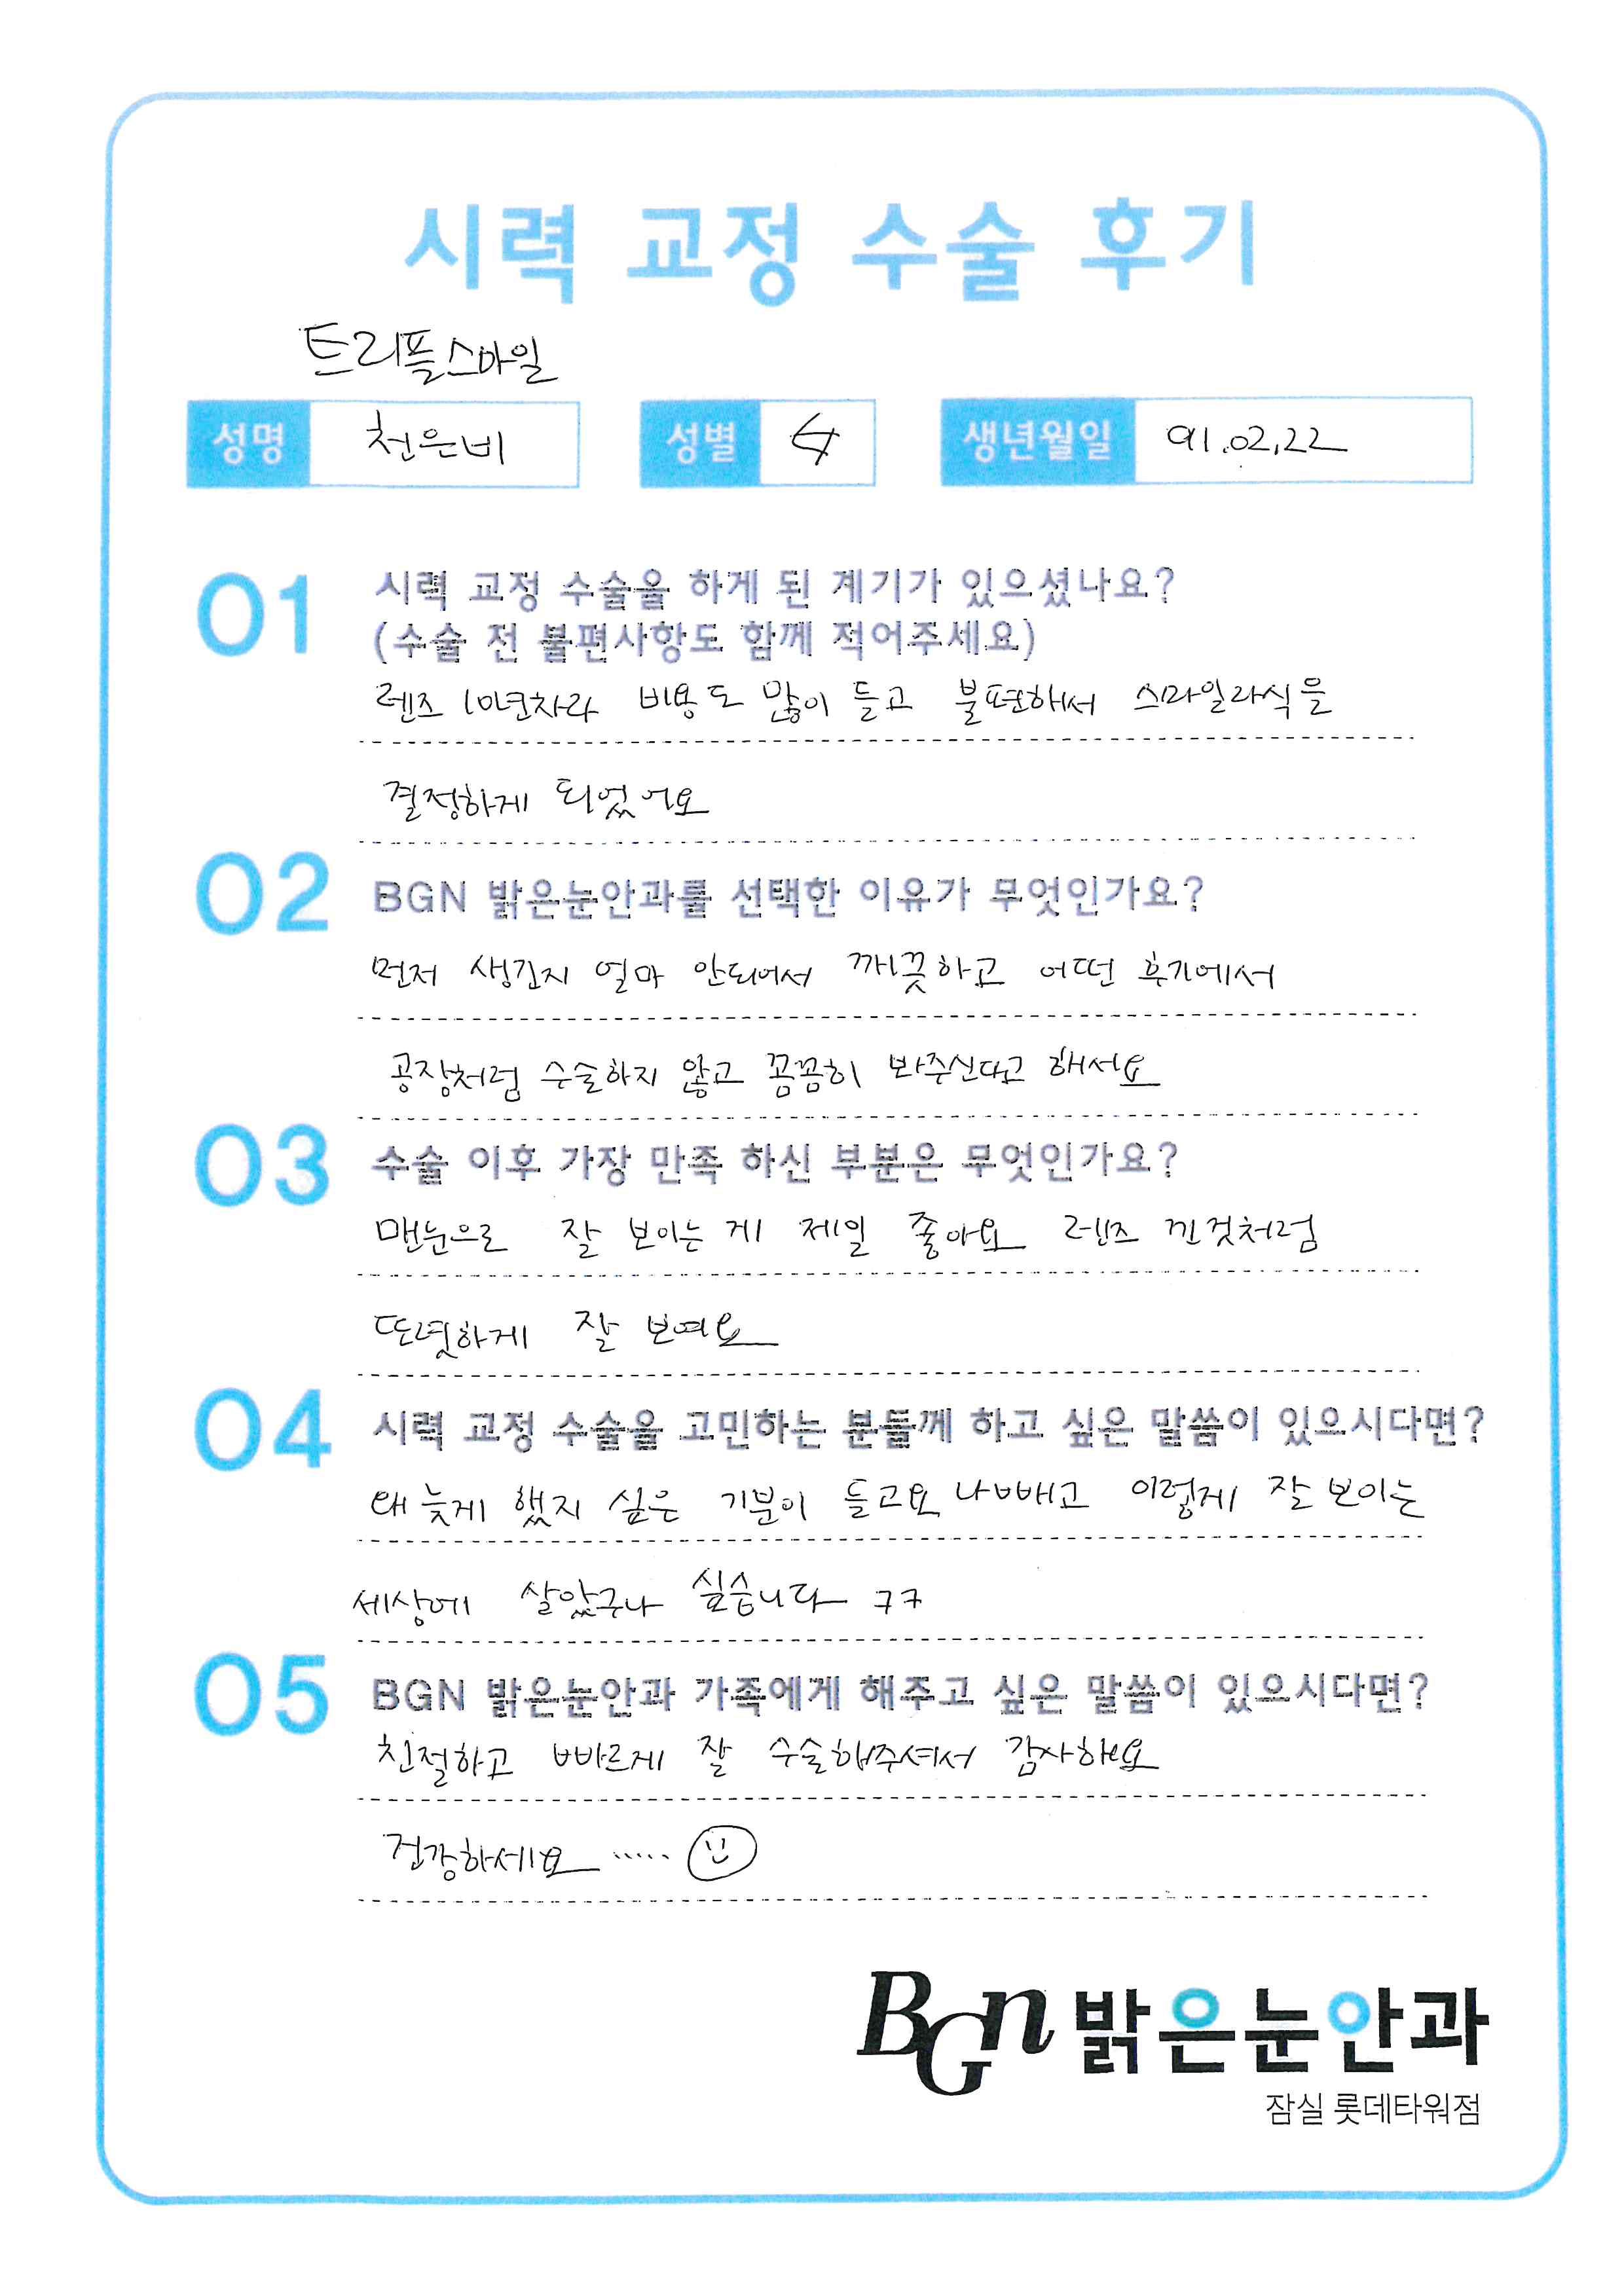 시력 교정 수술 후기
트리플스마일
성명 천은비 성별 女 생년월일 91.02.22
01 시력 교정 수술을 하게 된 계기가 있으셨나요?
(수술 전 불편사항도 함께 적어주세요)
렌즈 10년차라 비용도 많이 들고 불편해서 스마일라식을
결정하게 되었어요
02 BGN 밝은눈안과를 선택한 이유가 무엇인가요?
먼저 생긴지 얼마 안되어서 깨끗하고 어떤 후기에서
공장처럼 수술하지 않고 꼼꼼히 봐주신다고 해서요
03 수술 이후 가장 만족 하신 부분은 무엇인가요?
맨눈으로 잘 보이는 게 제일 좋아요 렌즈 낀것처럼
또렷하게 잘 보여요
04 시력 교정 수술을 고민하는 분들께 하고 싶은 말씀이 있으시다면?
왜 늦게 했지 싶은 기분이 들고요 나빼고 이렇게 잘 보이는
세상에 살았구나 싶습니다 ㅋㅋ
05 BGN 밝은눈안과 가족에게 해주고 싶은 말씀이 있으시다면?
친절하고 빠르게 잘 수술해주셔서 감사해요
건강하세요 .....
BGn 밝은눈안과
잠실 롯데타워점